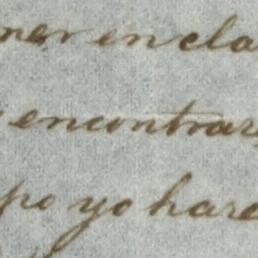 ner en cla
encontrar
po yo hare